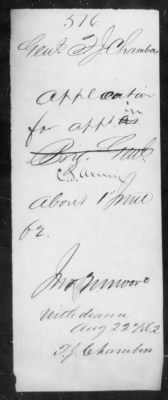 516
Genl. T J Chambers
application
for appt. in
Brig. Genl.
C.S. Army
about 1 June
62.
Withdrawn
Aug 22d 1862
T. J. Chambers